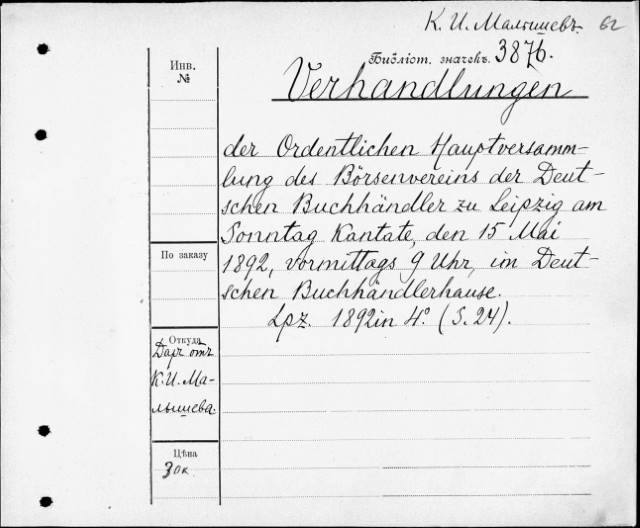 К. И. Малышевъ. 62
Библіот. значекъ. 3876.
Инв.
№
Verhandlungen
der Ordentlichen Hauptversamm-
lung des Börsenvereins der Deut-
schen Buchhändler zu Leipzig am
Sonntag Kantate, den 15 Mai
1892, vormittags 9 Uhr, im Deut-
schen Buchhändlerhause.
Lpz. 1892 in 4º. (S. 24).
По заказу
Откуда
Даръ отъ
К. И. Ма-
лышева.
Цѣна
30к